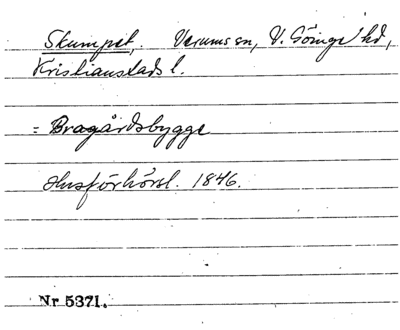 Skumpet, Verums sn, V. Göinge hd,
Kristianstads l.
= Bragårdsbygge
Husförhörsl. 1846.
Nr 5371.